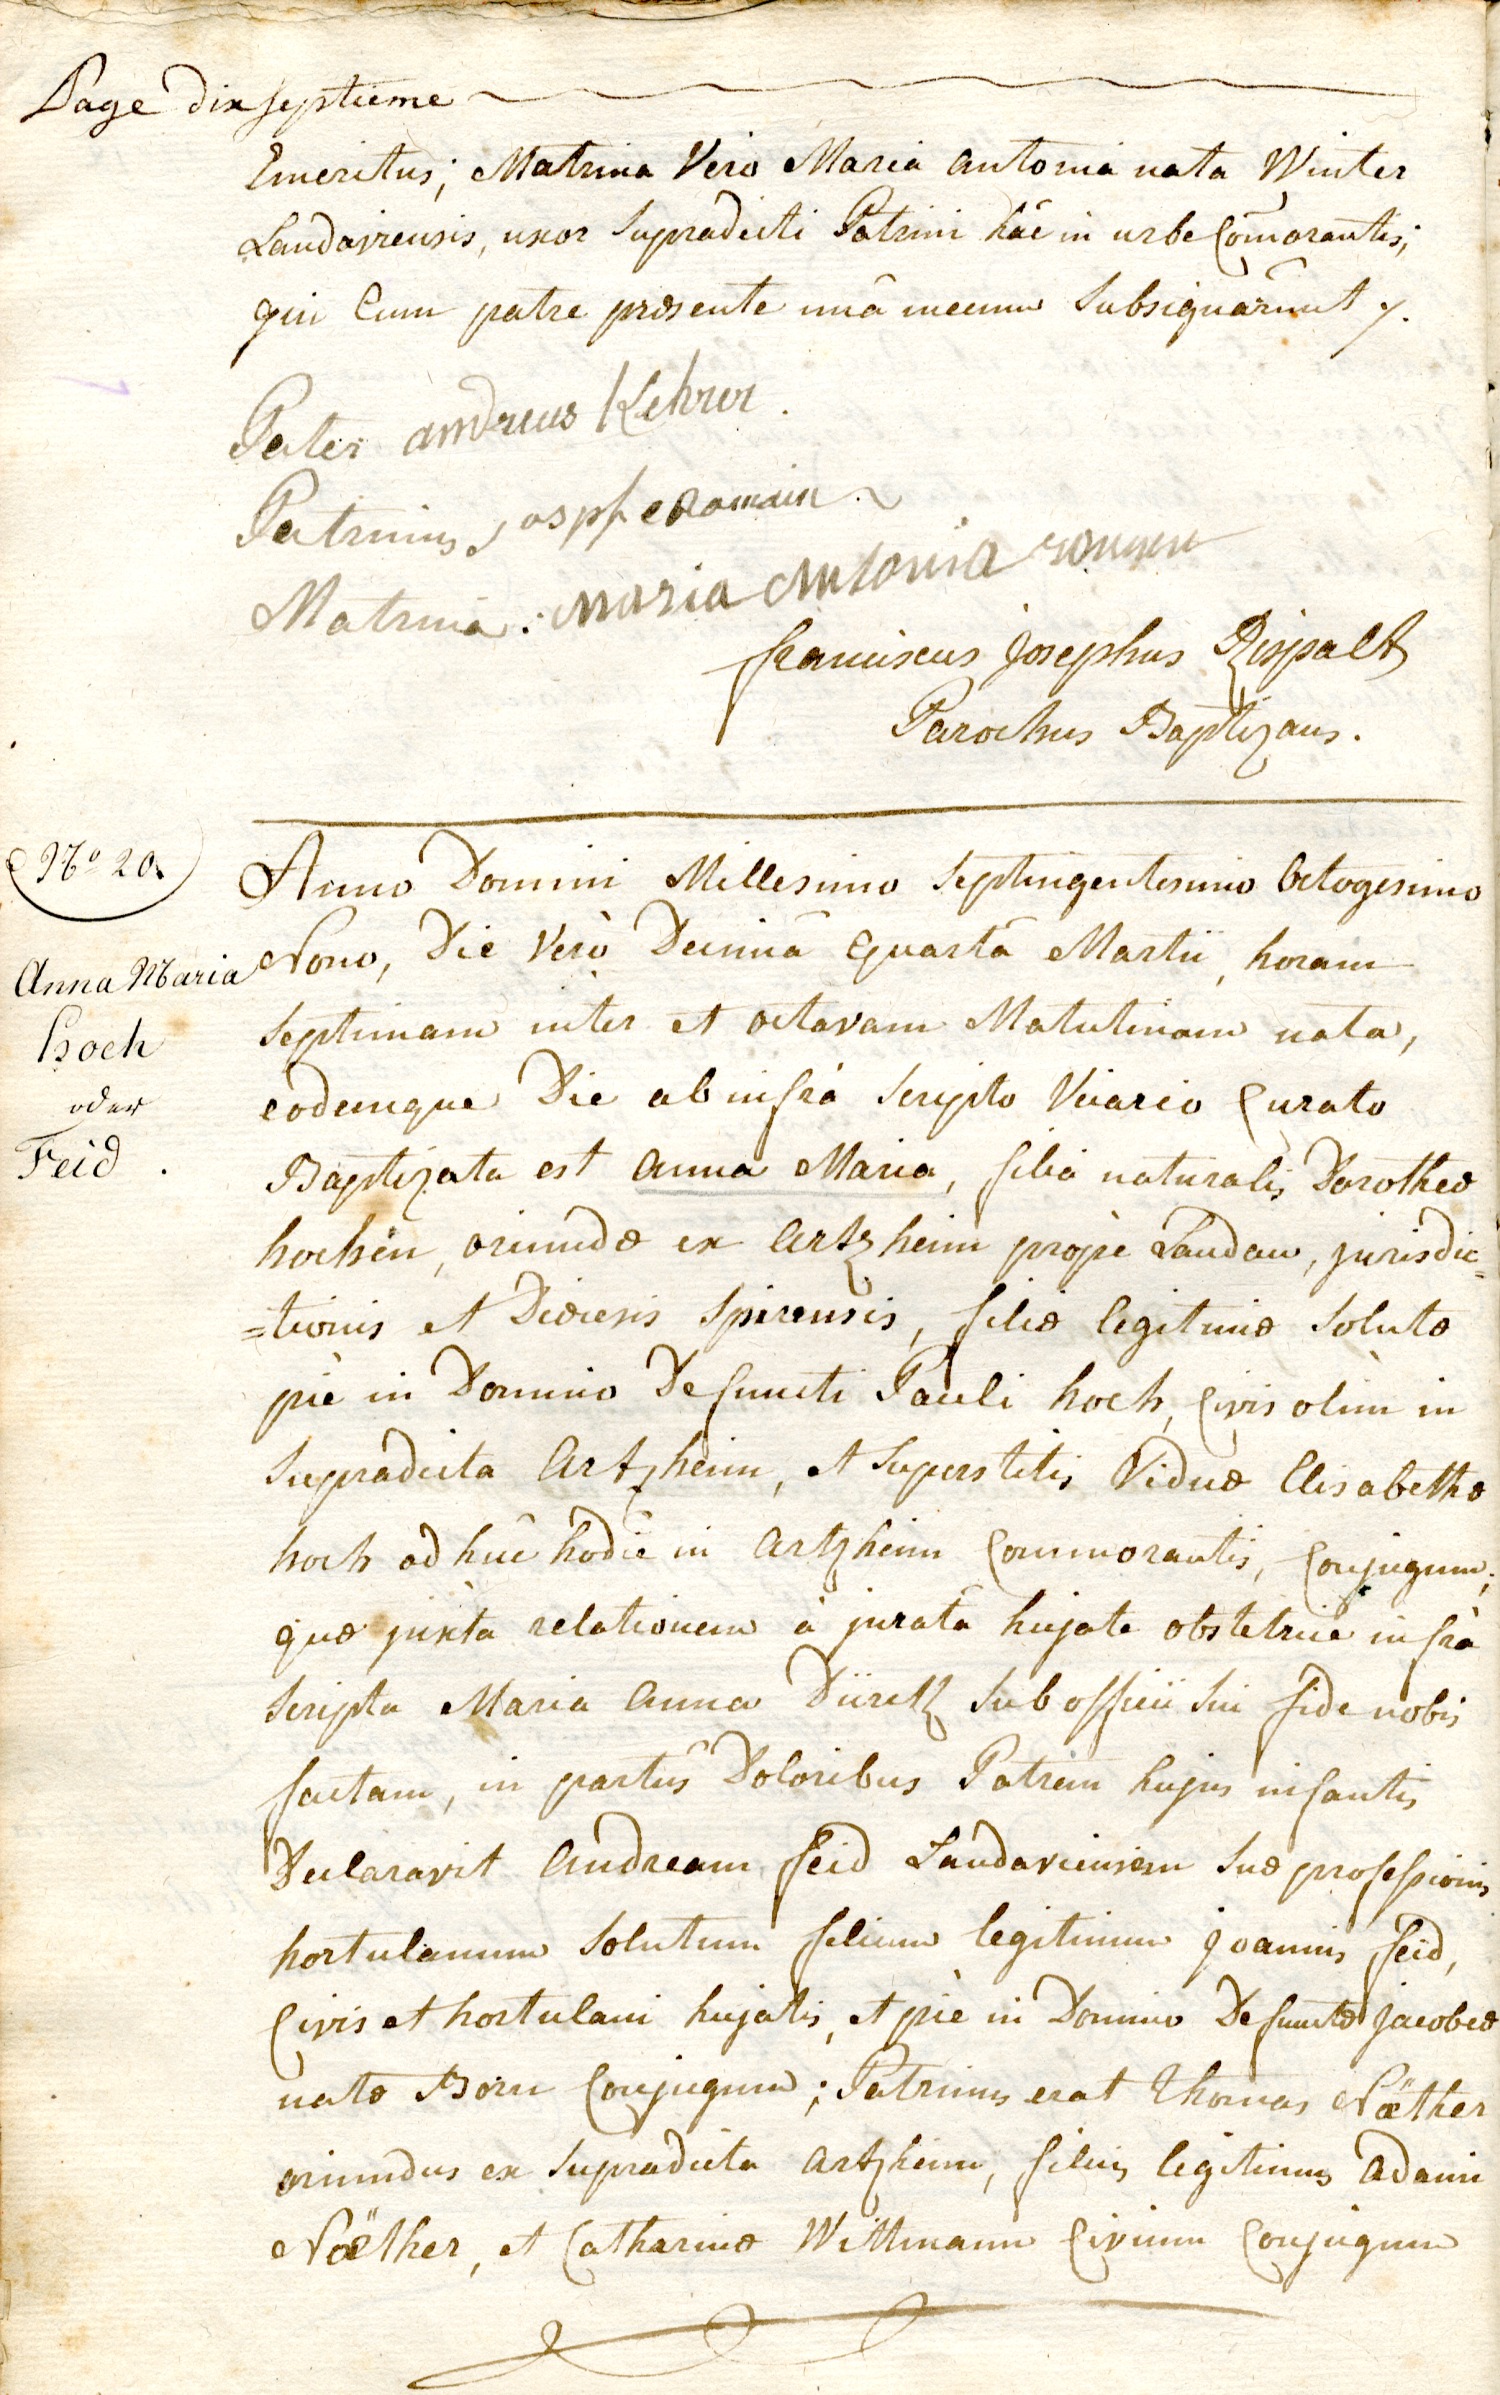 Page dixseptieme
Emeritus; Matrina Verò Maria antonia nata Winter
Landaviensis, uxor Supradicti Patrini hâc in urbe Com̃orantis;
qui Cum patre præsente unâ mecum Subsignârunt
Pater andreas Kehrer.
Patrinus
Matrina: maria Antonia
franciscus Josephus Rispalt
Parochus Baptizans.
Nº 20.
Anno Domini Millesimo Septingentesimo Octogesimo
Nono, Die Verò Decimâ Quartâ Martii, horam
Septimam inter et octavam Matutinam nata,
eodemque Die ab infrà Scripto Vicario Curato
Baptizata est Anna Maria, filia naturalis Dorotheæ
hochin, oriundæ ex Artzheim propè Landau, jurisdic=
=tionis et Diœcesis Spirensis, filiæ legitimæ Solutæ
piè in Domino Defuncti Pauli hoch, Civis olim in
Supradicta Artzheim, et Superstitis Viduæ Elisabethæ
hoch ad hûc hôdiê in Artzheim Commorantis, Conjugum;
quæ juxta relationem à juratâ hujate obstetrice infrà
Scripta Maria Anna Düretz Sub officii Sui fide nobis
factam, in partûs Doloribus Patrem hujus infantis
Declaravit Andream feid Landaviensem Suæ professionis
hortulanum Solutum filium legitimum Joannis feid,
Civis et hortulani hujatis, et piè in Domino Defunctæ Jacobeæ
natæ Born Conjugum; Patrinus erat Thomas Næther
oriundus ex Supradicta Artzheim, filius legitimus Adami
Næther, et Catharinæ Wittmann Civium Conjugum
Anna Maria
Hoch
oder
Feid.